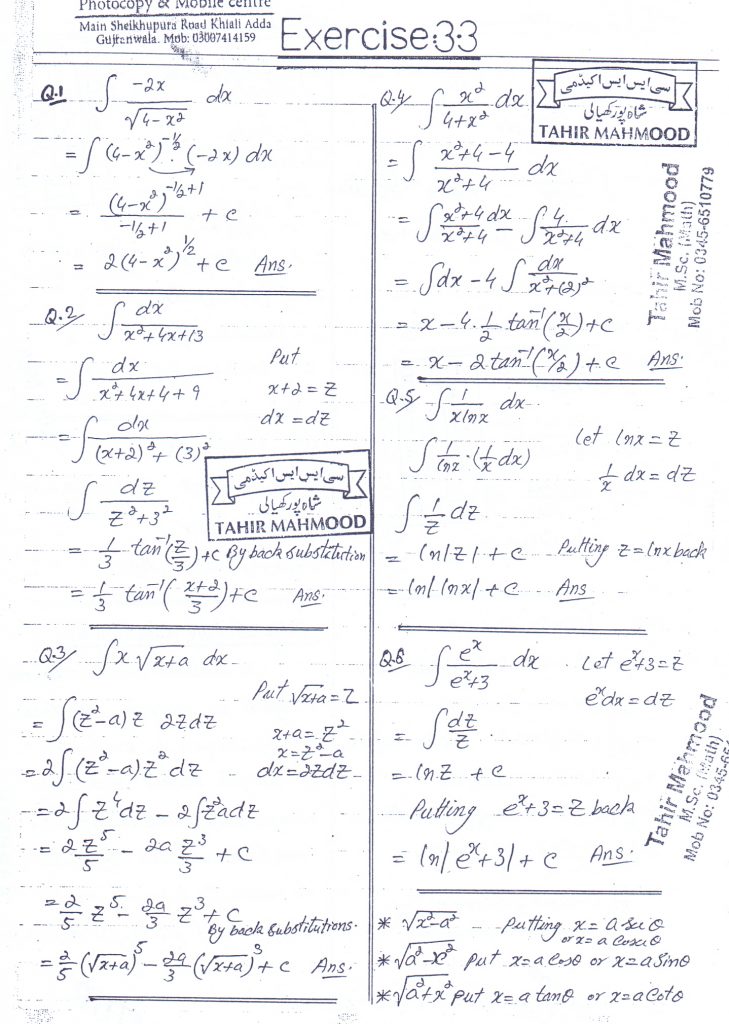 Photocopy & Mobile centre
Main Sheikhupura Road Khiali Adda
Gujranwala. Mob: 03007414159
Exercise:3.3
Q.1 ∫ -2x/√(4-x²) dx
= ∫ (4-x²)^(-1/2) . (-2x) dx
= (4-x²)^(-1/2+1)/(-1/2+1) + c
= 2(4-x²)^(1/2) + c Ans.
Q.2/ ∫ dx/(x²+4x+13)
= ∫ dx/(x²+4x+4+9) Put
x+2 = Z
dx = dZ
= ∫ dx/((x+2)²+(3)²)
∫ dZ/(Z²+3²)
= 1/3 tan⁻¹(Z/3)+c By back substitution
= 1/3 tan⁻¹((x+2)/3)+c Ans.
سی ایس ایس اکیڈمی
شاہ پور کھیالی
TAHIR MAHMOOD
Q.3/ ∫ x √(x+a) dx
Put √(x+a) = Z
x+a = Z²
x = Z²-a
dx = 2ZdZ
= ∫ (Z²-a) Z 2ZdZ
= 2∫ (Z²-a) Z² dZ
= 2∫ Z⁴dZ - 2∫Z²adZ
= 2 Z⁵/5 - 2a Z³/3 + c
= 2/5 Z⁵ - 2a/3 Z³ + c
By back substitutions.
= 2/5 (√(x+a))⁵ - 2a/3 (√(x+a))³ + c Ans.
Q.4/ ∫ x²/(4+x²) dx
سی ایس ایس اکیڈمی
شاہ پور کھیالی
TAHIR MAHMOOD
= ∫ (x²+4-4)/(x²+4) dx
= ∫ (x²+4)/(x²+4) dx - ∫ 4/(x²+4) dx
= ∫dx - 4 ∫ dx/(x²+(2)²)
= x - 4.1/2 tan⁻¹(x/2)+c
= x - 2tan⁻¹(x/2) + c Ans.
Tahir Mahmood
M.Sc. (Math)
Mob No: 0345-6510779
Q.5/ ∫ 1/(xlnx) dx
Let lnx = Z
1/x dx = dZ
∫ 1/lnx . (1/x dx)
∫ 1/Z dZ
= ln|Z| + c Putting Z = lnx back
= ln|lnx| + c Ans
Q.6 ∫ eˣ/(eˣ+3) dx Let eˣ+3 = Z
eˣdx = dZ
= ∫ dZ/Z
= lnZ + c
Putting eˣ+3 = Z back
= ln|eˣ+3| + c Ans.
Tahir Mahmood
M.Sc. (Math)
Mob No: 0345-65
* √(x²-a²) Putting x = a secθ
or x = a cosecθ
* √(a²-x²) put x = a cosθ or x = a sinθ
* √(a²+x²) put x = a tanθ or x = a cotθ